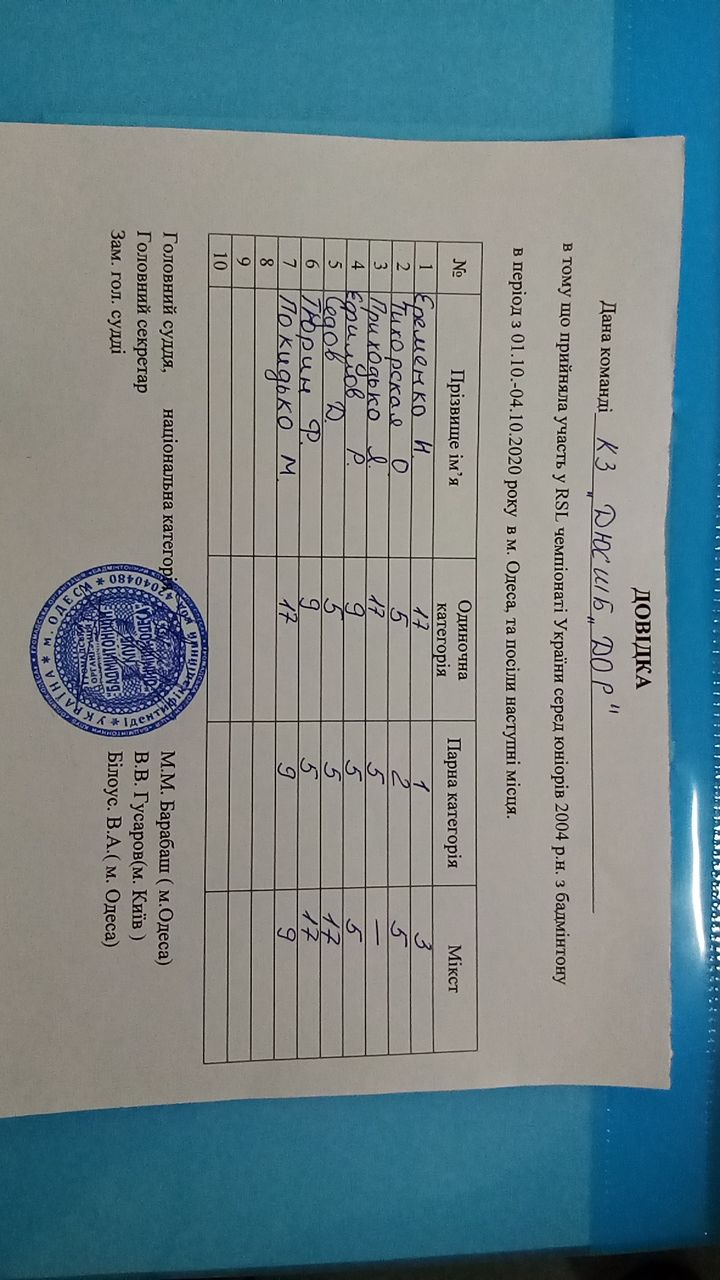 ДОВІДКА
Дана команді КЗ „ДЮСШБ„ДОР"
в тому що прийняла участь у RSL чемпіонаті України серед юніорів 2004 р.н. з бадмінтону
в період з 01.10.-04.10.2020 року в м. Одеса, та посіли наступні місця.
№ Прізвище ім’я Одиночна категорія Парна категорія Мікст
1 Еременко Н. 17 1 3
2 Пикорская О 5 2 5
3 Приходько Я. 17 5 —
4 Ефимов Р. 9 5 5
5 Седов Д. 5 5 17
6 Тюрин Ф. 9 5 17
7 Покидько М. 17 9 9
8
9
10
Головний суддя, національна категорі М.М. Барабаш ( м.Одеса)
Головний секретар В.В. Гусаров(м. Київ )
Зам. гол. судді Білоус. В.А.( м. Одеса)
УКРАЇНА * м. ОДЕСА * 42040480